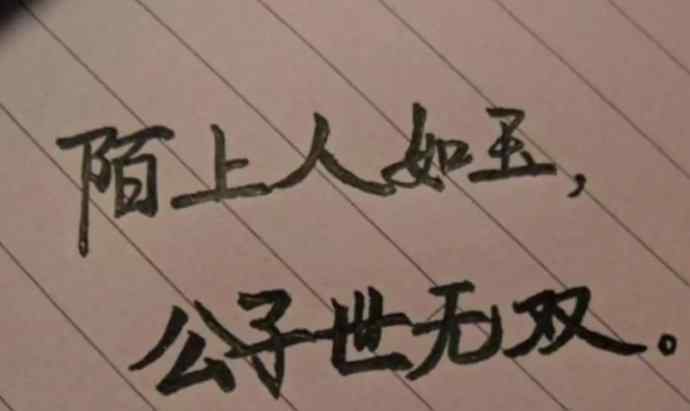 陌上人如玉，
公子世无双。